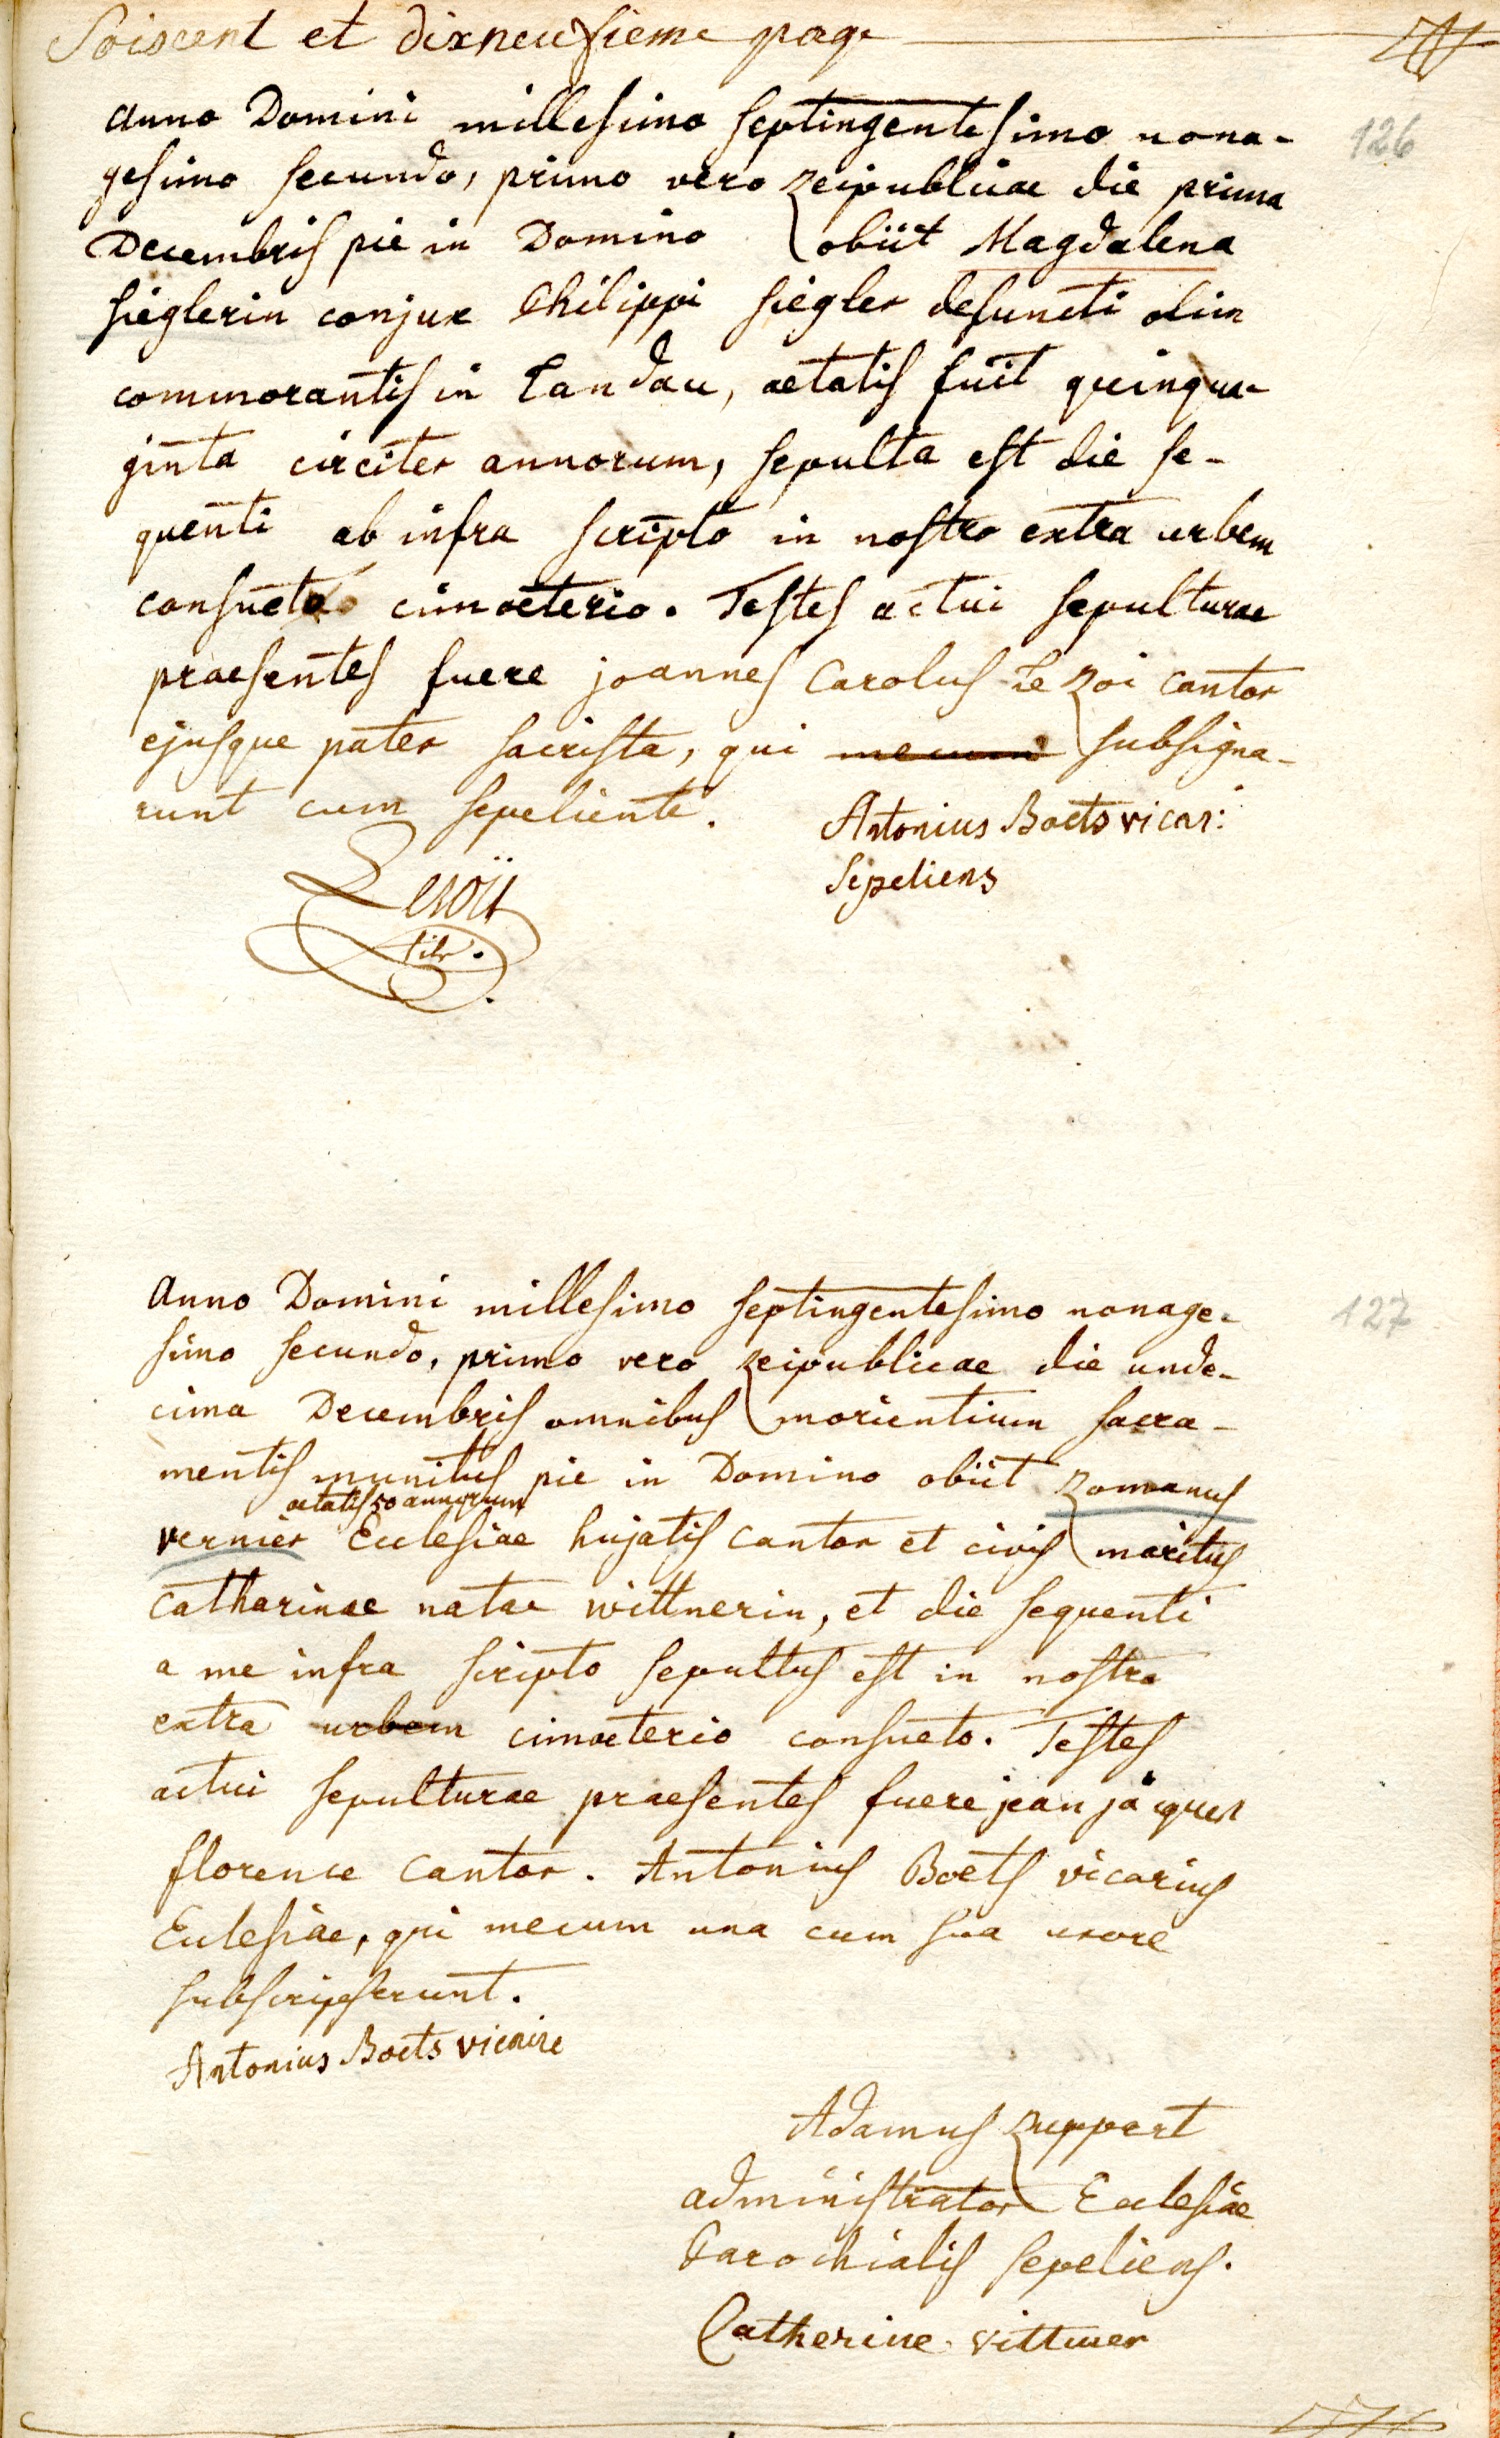 Soiscent et dixneufieme page
126
anno Domini millesimo septingentesimo nona-
gesimo secundo, primo vero reipublicae die prima
Decembris pie in Domino obiit Magdalena
sieglerin conjux Philippi siegler defuncti olim
commorantis in Landau, aetatis fuit quinqua-
ginta circiter annorum, sepulta est die se-
quenti ab infra scripto in nostro extra urbem
consueto cimoeterio. Testes actui sepulturae
praesentes fuere joannes Carolus Le roi cantor
ejusque pater sacrista, qui mecum subsigna-
runt cum sepeliente.
Antonius Boets vicar:
Sepeliens
Leroÿ
filr.
127
Anno Domini millesimo septingentesimo nonage-
simo secundo, primo vero reipublicae die unde-
cima Decembris omnibus morientium sacra-
mentis munitus pie in Domino obiit romanus
aetatis 50 annorum
vernier Ecclesiae hujatis cantor et civis maritus
Catharinae natae wittnerin, et die sequenti
a me infra scripto sepultus est in nostro
extra urbem cimoeterio consueto. Testes
actui sepulturae praesentes fuere jean jaques
florence cantor. Antonius Boets vicarius
Eclesiae, qui mecum una cum sua uxore
subscripserunt.
Antonius Boets vicaire
Adamus ruppert
administrator Ecclesiae
Parochialis sepeliens.
Catherine vittmer